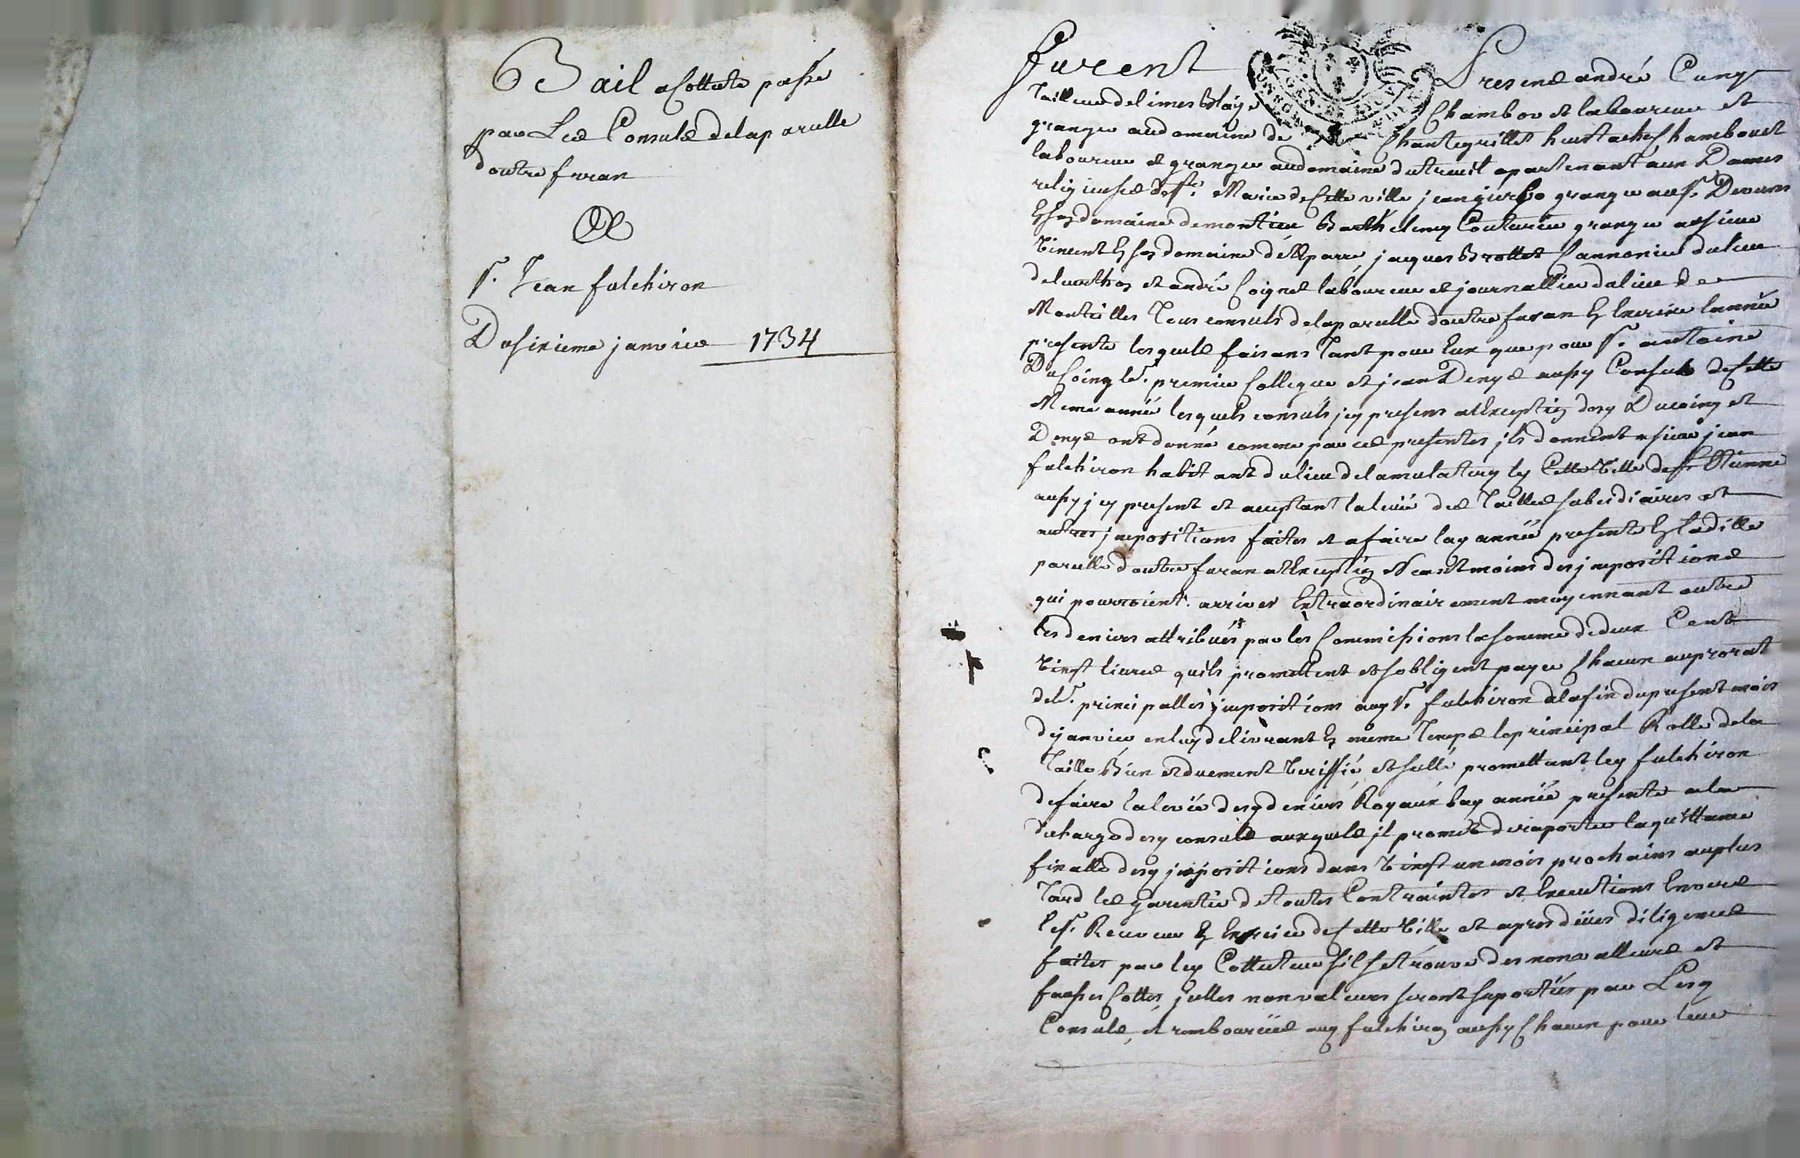 Bail a Collecte passé
par Les Consuls de la parcelle
d'outre furan
A
sr. Jean fulchiron
Du sixieme janvier 1734
furent Presens andré Cuny
Tailleur de limes Blaize Chambovet laboureur et
granger au domaine de Chantegrillet heustache Chambovet
laboureur et granger au domaine du treuil apartenant aux Dames
religieuses de Ste. Marie de cette ville jean granger au sr.
En son domaine de montieu Barthelemy Couturier granger a sieur
Vincent En son domaine jacques Brottet du lieu
et andré Coignet laboureur et journallier du lieu de
Montilles Tous consuls de la parcelle d'outre furan En Exercice lannée
presente lesquels faisans tant pour Eux que pour sr. antoine
Ducoing leur premier Collegue et jean Denys aussy Consuls de cette
Meme année lesquels consuls jcy presens a l'Exception desd Ducoing et
Denys ont donné comme par ces presentes jls donnent a sieur jean
fulchiron habitant du lieu de la mulatiere les Cette Ville de st Etienne
aussy jcy present et acceptant la levée des Tailles subsidiaires et
autres jmpositions faites et a faire lad année presente En ladite
parcelle d'outre furan a l'Exception Neantmoins des jmpositions
qui pourroient arriver Extraordinairement moyennant outre
les deniers attribués par les Commissions la somme de deux Cent
Vingt livres quils promettent et sobligent payer Chacun au prorat
de leur principalles jmpositions aud sr. fulchiron a la fin du present mois
de janvier en luy delivrant En meme Temps le principal Rolle de la
Taille Bien et duement Veriffié et scellé promettant led fulchiron
de faire la levée desd deniers Royaux lad année presente a la
decharge desd consuls auxquels jl promet de raporter la quittance
finalle desd jmpositions dans Vingt un mois prochains au plus
Tard les garentir de toutes Contraintes et Executions Envers
le sr. Receveur En Exercice de cette Ville et apres dües diligences
faites par led Collecteur sil se trouve des nonvalleurs et
fausses Cottes jcelles nonvaleurs seront suportées par Lesd
Consuls, et remboursées aud fulchiron aussy Chacun pour leur